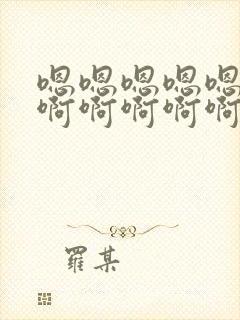 嗯嗯嗯嗯嗯
啊啊啊啊啊
羅某